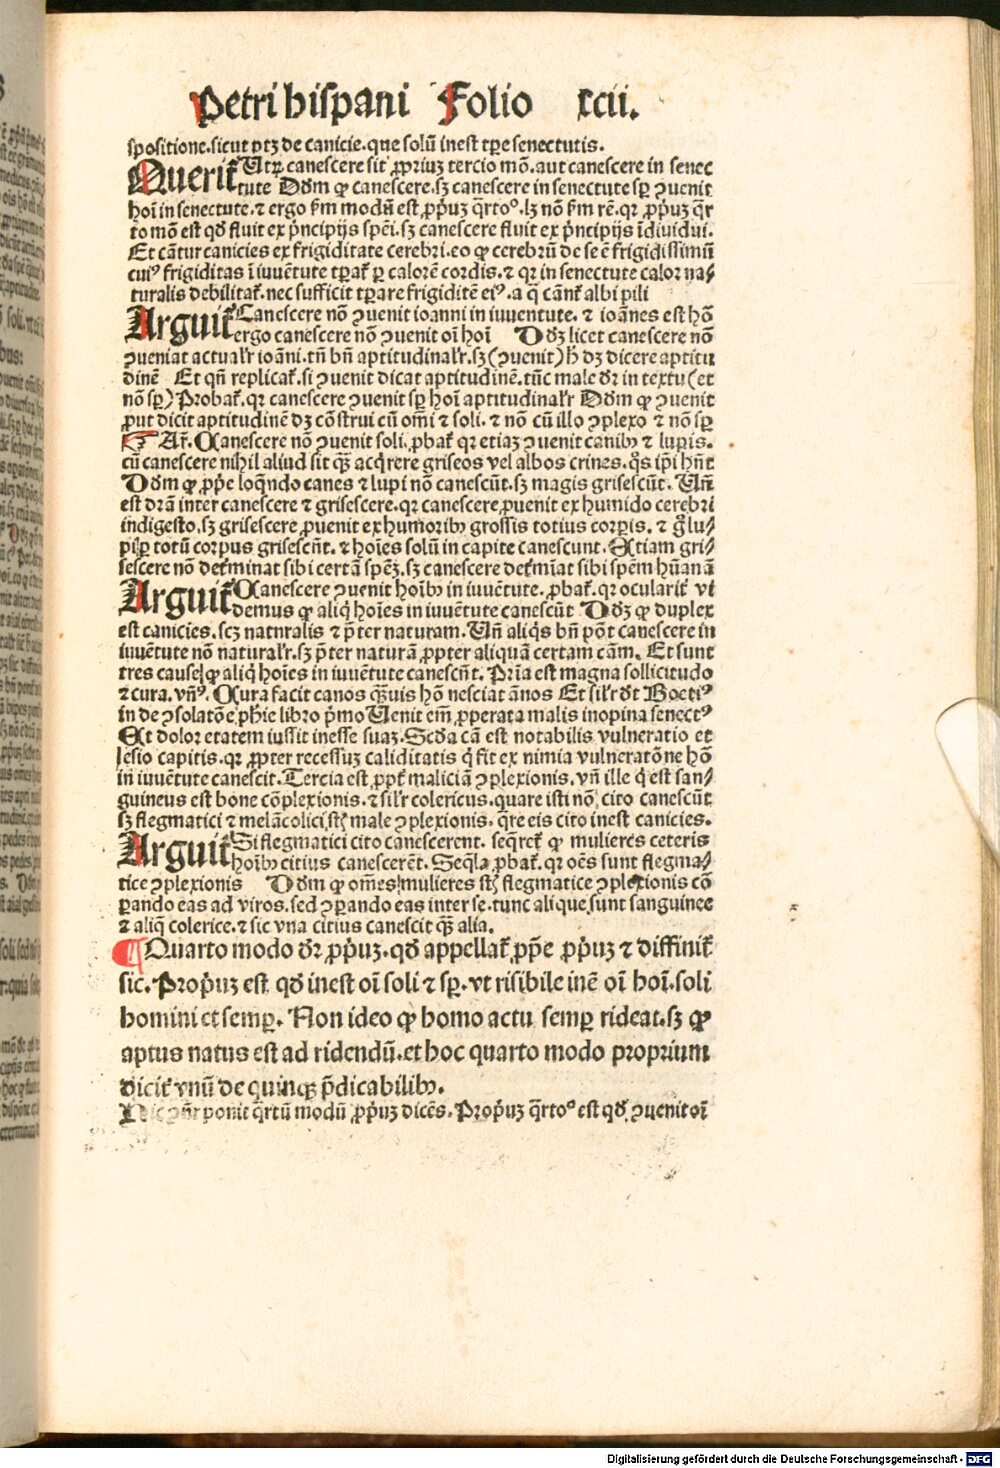 Petri hispani Folio xcii.
spositione.sicut ptꝫ de canicie.que solũ inest tꝑe senectutis.
Querit᷑ Utꝝ canescere sit ꝓpriuꝫ tercio mõ.aut canescere in senec
tute Dõm ꝙ canescere.sꝫ canescere in senectute sꝑ ꝯuenit
hoĩ in senectute.⁊ ergo ẜm modũ est ꝓpṙiuꝫ q̃rto°.lꝫ nõ ẜm rẽ.qꝛ ꝓpṙuꝫ q̃r
to mõ est qð fluit ex pṙncipijs speĩ.sꝫ canescere fluit ex pṙncipijs ĩdiuidui.
Et cãtur canicies ex frigiditate cerebri.eo ꝙ cerebrũ de se ẽ frigidissimũ
cuiꝰ frigiditas ĩ iuuẽtute tꝑat᷑ ꝑ calorẽ cordis.⁊ qꝛ in senectute calor na⸗
turalis debilitat᷑.nec sufficit tꝑare frigiditẽ eiꝰ.a q̃ cãnt᷑ albi pili
Arguit᷑ Canescere nõ ꝯuenit ioanni in iuuentute.⁊ ioãnes est hõ
ergo canescere nõ ꝯuenit oĩ hoĩ Dõꝫ licet canescere nõ
ꝯueniat actual'r ioãni.tñ bñ aptitudinal'r.sꝫ (ꝯuenit) h̃ dꝫ dicere aptitu
dinẽ Et qñ replicat᷑.si ꝯuenit dicat aptitudinẽ.tũc male ðr in textu (et
nõ sꝑ) Probat᷑.qꝛ canescere ꝯuenit sꝑ hoĩ aptitudinal'r Dõm ꝙ ꝯuenit
ꝓut dicit aptitudinẽ dꝫ cõstrui cũ omĩ ⁊ soli.⁊ nõ cũ illo ꝯplexo ⁊ nõ sꝑ
☞ Ar̃. Canescere nõ ꝯuenit soli.ꝓbat᷑ qꝛ etiaꝫ ꝯuenit canibꝰ ⁊ lupis.
cũ canescere nihil aliud sit q̃ꝫ acq̃rere griseos vel albos crines.q̃s ip̃i hñt
Dõm ꝙ ꝓpṙe loq̃ndo canes ⁊ lupi nõ canescũt.sꝫ magis grisescũt. Uñ
est drã inter canescere ⁊ grisescere.qꝛ canescere ꝓuenit ex humido cerebri
indigesto.sꝫ grisescere ꝓuenit ex humoribꝰ grossis totius corꝑis.
totũ corpus grisescũt.⁊ hoĩes solũ in capite canescunt. Etiam gri⸗
sescere nõ det᷑minat sibi certã spẽꝫ.sꝫ canescere det᷑mĩat sibi spẽm hũanã
Arguit᷑ Canescere ꝯuenit hoĩbꝰ in iuuẽtute.ꝓbat᷑.qꝛ ocularit᷑ vi
demus ꝙ aliq̃ hoĩes in iuuẽtute canescũt Dõꝫ ꝙ duplex
est canicies.scꝫ natnralis ⁊ pṙter naturam. Uñ aliq̃s bñ põt canescere in
iuuẽtute nõ natural'r.sꝫ pṙter naturã ꝓpter aliquã certam cãm. Et sunt
tres cause ꝙ aliq̃ hoĩes in iuuẽtute canescũt. Prĩa est magna sollicitudo
⁊ cura.vñꝰ. Cura facit canos q̃ꝫuis hõ nesciat ãnos Et sil'r ðt Boetiꝰ
in de ꝯsolatõe phĩe libro pṙmo Uenit em̃ ꝓperata malis inopina senectꝰ
Et dolor etatem iussit inesse suaꝫ. Scða cã est notabilis vulneratio et
lesio capitis.qꝛ ꝓpter recessuꝫ caliditatis q̃ fit ex nimia vulneratõne hõ
in iuuẽtute canescit. Tercia est ꝓpt᷑ maliciã ꝯplexionis.vñ ille q̃ est san⸗
guineus est bone cõplexionis.⁊ sil'r colericus.quare isti nõ cito canescũt
sꝫ flegmatici ⁊ melãcolici st̃ male ꝯplexionis.q̃re eis cito inest canicies.
Arguit᷑ Si flegmatici cito canescerent.seq̃ret᷑ ꝙ mulieres ceteris
hoĩbꝰ citius canescerẽt. Seq̃la ꝓbat᷑.qꝛ oẽs sunt flegma⸗
tice ꝯplexionis Dõm ꝙ omẽs mulieres st̃ flegmatice ꝯplexionis cõ
ꝑando eas ad viros.sed ꝯꝑando eas inter se.tunc alique sunt sanguinee
⁊ aliq̃ colerice.⁊ sic vna citius canescit q̃ꝫ alia.
¶ Quarto modo ðr ꝓpṙuꝫ.qð appellat᷑ ꝓpṙe ꝓpṙuꝫ ⁊ diffinit᷑
sic. Propṙuꝫ est qð inest oĩ soli ⁊ sꝑ.vt risibile inẽ oĩ hoĩ.soli
homini et semꝑ. Non ideo ꝙ homo actu semꝑ rideat.sꝫ ꝙ
aptus natus est ad ridendũ.et hoc quarto modo proprium
dicit᷑ vnũ de quinqꝫ pṙdicabilibꝰ.
Hic ponit q̃rtũ modũ ꝓpṙuꝫ dicẽs. Propṙuꝫ q̃rto° est qð ꝯuenit oĩ
Digitalisierung gefördert durch die Deutsche Forschungsgemeinschaft - DFG